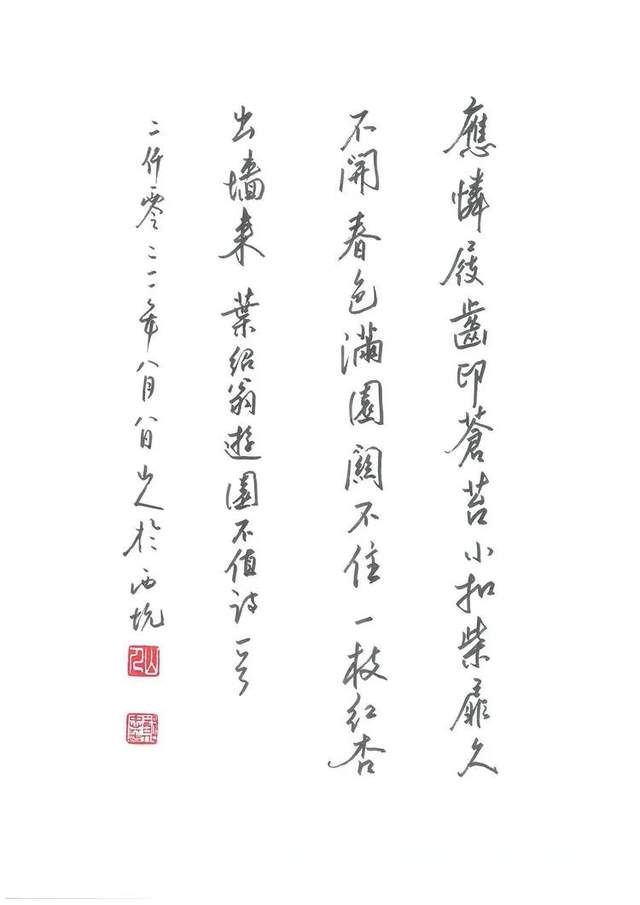 應憐屐齒印蒼苔小扣柴扉久
不開春色滿園關不住一枝紅杏
出墻來 葉紹翁遊園不值詩一首
二仟零二一年八月八日山人於西坑
山人